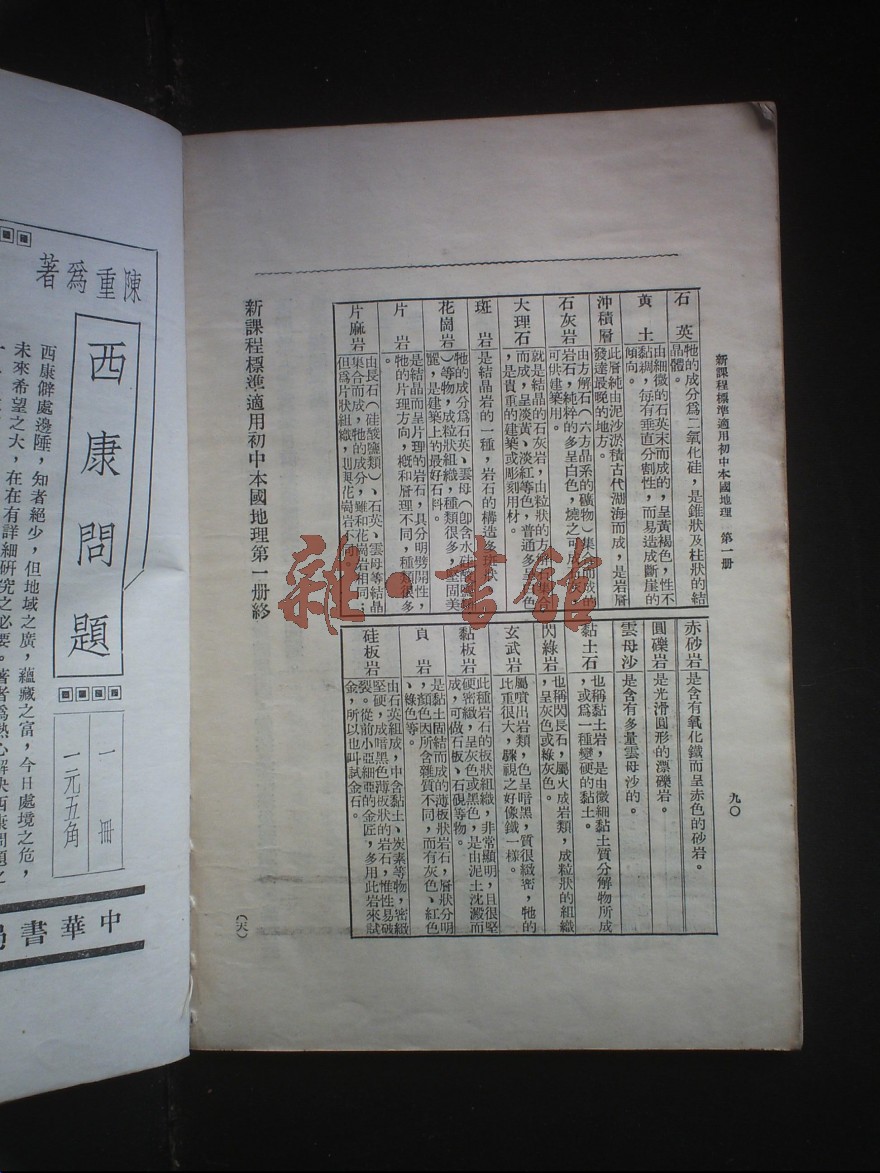 新課程標準適用初中本國地理　第一册
九〇
石英
牠的成分爲二氧化硅，是錐狀及柱狀的結
晶體。
黄土
由細微的石英末而成的，呈黃褐色，性不
黏稠，每有垂直分割性，而易造成斷崖的
傾向。
沖積層
此層純由泥沙淤積古代湖海而成，是岩層
發達最晚的地方。
石灰岩
由方解石（六方晶系的礦物）集合而成的
岩石，純粹的多呈白色，燒之可成
可供建築用。
大理石
就是結晶的石灰岩，由粒狀的方
而成，呈淡黃、淡紅等色，普通多
，是貴重的建築或彫刻用材。
斑岩
是結晶岩的一種，岩石的構造多斑狀。
花崗岩
牠的成分爲石英、雲母（卽含水硅酸鹽類
）等物，成粒狀組織，種類很多，堅固美
麗，是建築上的最好石料。
片岩
是結晶而呈片理的岩石，具分明劈開性，
牠的片理方向，槪和層理不同，種類很多
。
片麻岩
由長石（硅酸鹽類）、石英、雲母等結晶
集合而成，牠的成分，雖和花崗岩相同；
但爲片狀組織，則與花崗岩不同。
赤砂岩
是含有氧化鐵而呈赤色的砂岩。
圓礫岩
是光滑圓形的漂礫岩。
雲母沙
是含有多量雲母沙的。
黏土石
也稱黏土岩，是由微細黏土質分解物所成
，或爲一種變硬的黏土。
閃綠岩
也稱閃長石，屬火成岩類，成粒狀的組織
，呈灰色或綠灰色。
玄武岩
屬噴出岩類，色呈暗黑，質很緻密，牠的
比重很大，驟視之好像鐵一樣。
黏板岩
此種岩石的板狀組織，非常顯明，且很堅
硬密緻，呈灰色或黑色，是由泥土沈澱而
成，可做石板、石硯等物。
頁岩
是黏土固結而成的薄板狀岩石，層狀分明
，顏色因所含雜質不同，而有灰色、紅色
、綠色等。
硅板岩
由石英組成，中含黏土、炭素等物，密緻
堅硬，成暗黑色薄板狀的岩石，惟性易破
裂。從前小亞細亞的金匠，多用此岩來試
金，所以也叫試金石。
新課程標準適用初中本國地理第一册終
（天）
雜·書館
陳重爲著
西康問題
一册
一元五角
西康僻處邊陲，知者絕少，但地域之廣，蘊藏之富，今日處境之危，
未來希望之大，在在有詳細硏究之必要。著者爲熱心解決西康問題之
中華書局